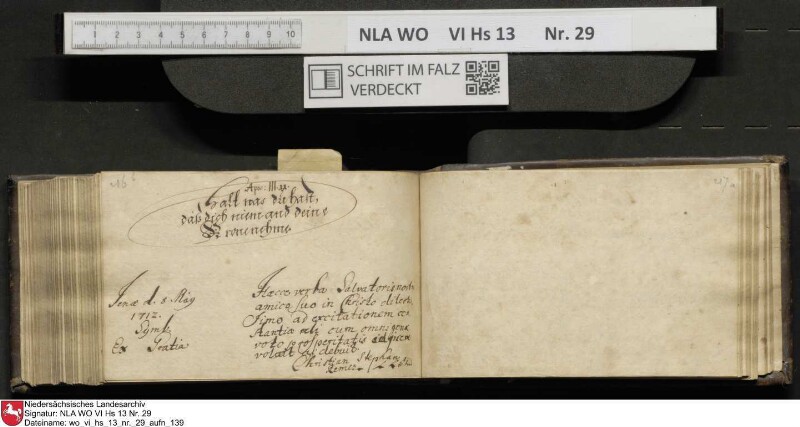 1 2 3 4 5 6 7 8 9 10
NLA WO VI Hs 13 Nr. 29
SCHRIFT IM FALZ
VERDECKT
216
217
Apoc. III
Halt was du hast,
daß dich niemand deine
Krone nehme.
Jenæ d. 8 May
1712.
Symb.
Ex Gratia
Hæcce verba Salvatoris
amico suo in Christo dilectis
simo ad excitationem con
stantiæ cum omnigeno
voto prosperitatis
volait ac debuit
Christian
Niedersächsisches Landesarchiv
Signatur: NLA WO VI Hs 13 Nr. 29
Dateiname: wo_vi_hs_13_nr._29_aufn_139